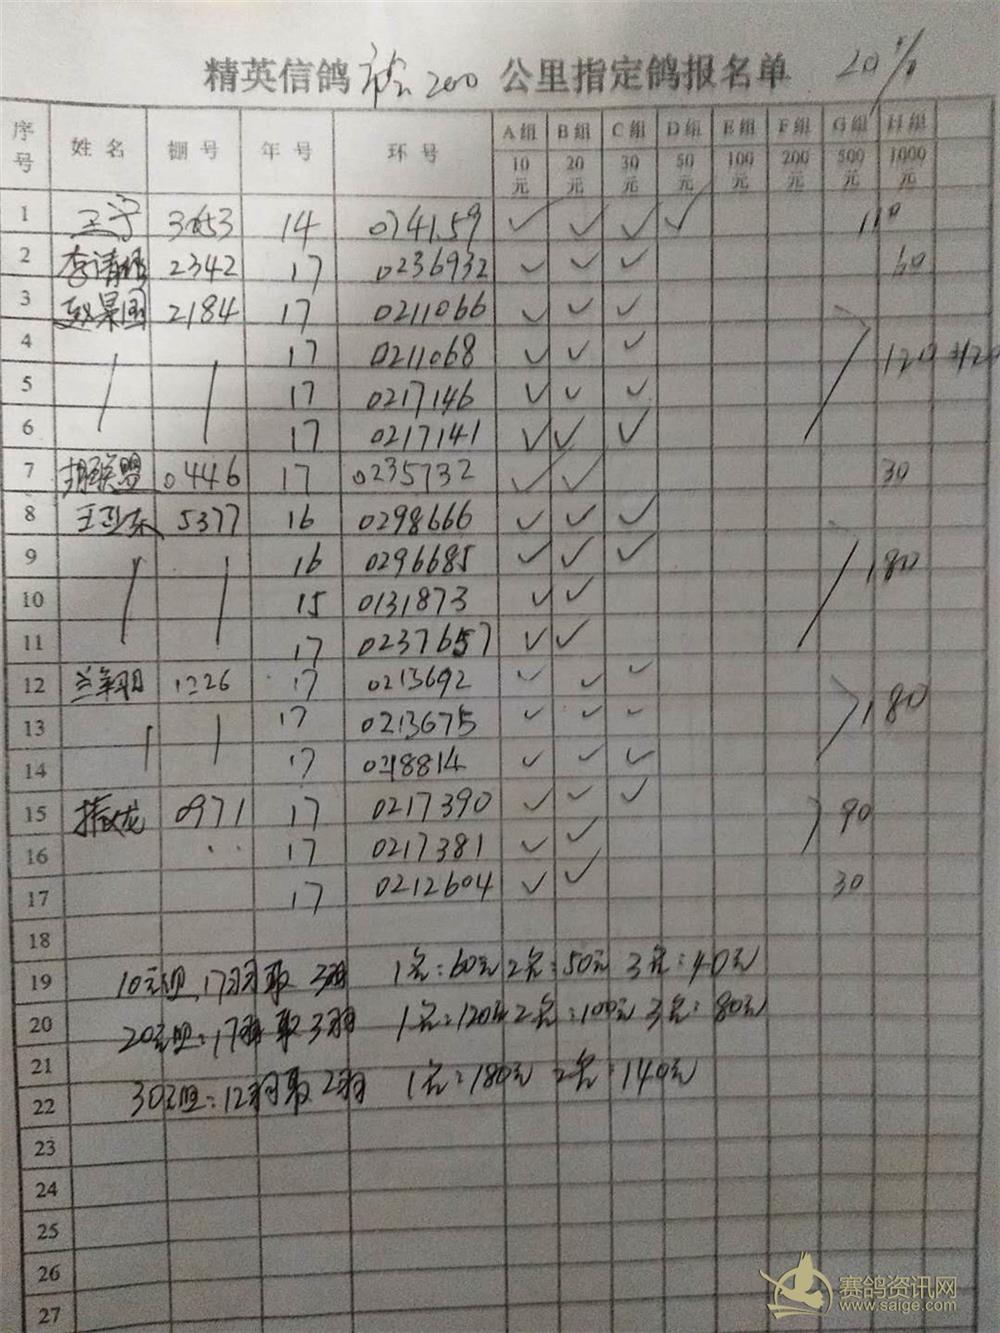 精英信鸽 市台 200 公里指定鸽报名单 20%
序号 姓名 棚号 年号 环号 A组 B组 C组 D组 E组 F组 G组 H组
10元 20元 30元 50元 100元 200元 500元 1000元
1 王宁 3653 14 074159 ✓ ✓ ✓ ✓ 110
2 2342 17 0236932 ✓ ✓ ✓ 60
3 2184 17 0211066 ✓ ✓ ✓
4 17 0211068 ✓ ✓ ✓ 120
5 17 0217146 ✓ ✓ ✓
6 17 0217141 ✓ ✓ ✓
7 0446 17 0235732 ✓ ✓ 30
8 王卫东 5377 16 0298666 ✓ ✓ ✓
9 16 0296685 ✓ ✓ ✓ 180
10 15 0131873 ✓ ✓
11 17 0237657 ✓ ✓
12 兰翔 1226 17 0213692 ✓ ✓ ✓
13 17 0213675 ✓ ✓ ✓ 180
14 17 0218814 ✓ ✓ ✓
15 0971 17 0217390 ✓ ✓ ✓ 90
16 17 0217381 ✓ ✓
17 17 0212604 ✓ ✓ 30
18
19 10元组:17羽取3羽 1名:60元 2名:50元 3名:40元
20 20元组:17羽取3羽 1名:120元 2名:100元 3名:80元
21
22 30元组:12羽取2羽 1名:180元 2名:140元
23
24
25
26
27
赛鸽资讯网
www.saige.com